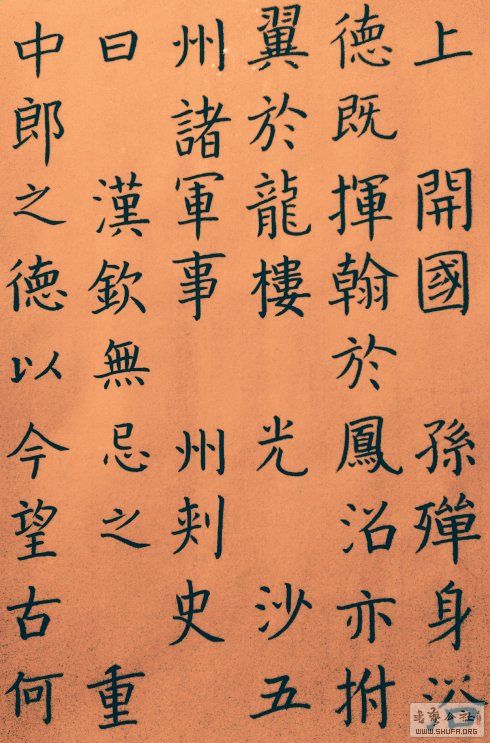 上 開國 孫殫身浴
德既揮翰於鳳沼亦拊
翼於龍樓 光 沙五
州諸軍事 州刾史
曰 漢欽無忌之 重
中郎之德以今望古何
WWW.SHUFA.ORG